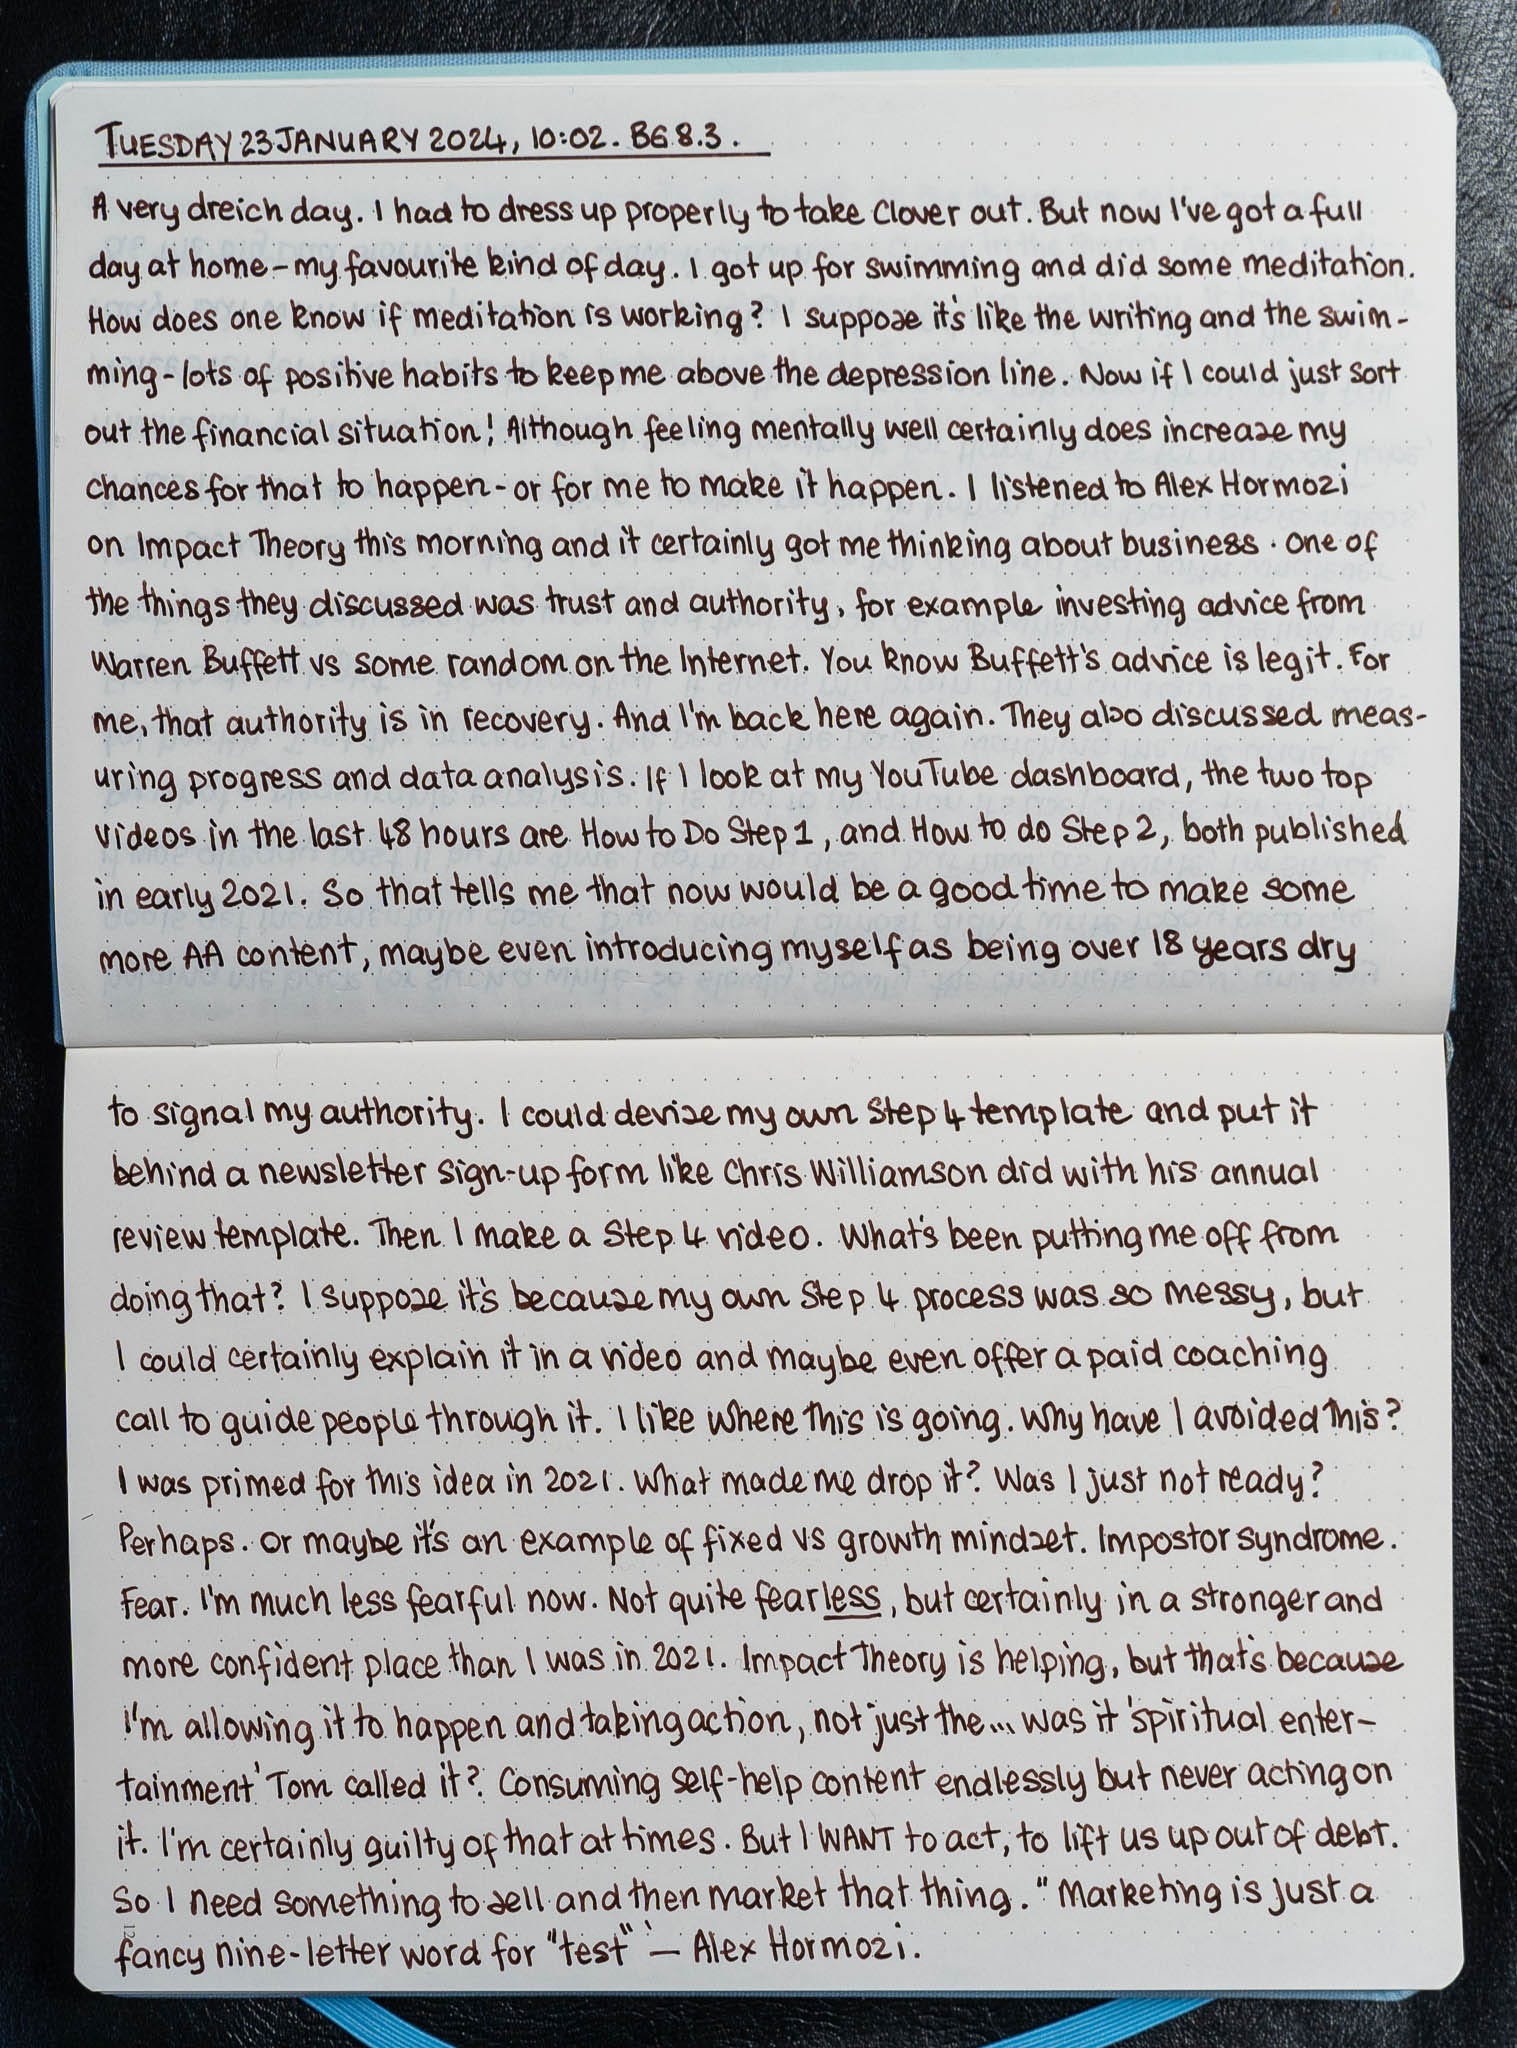 TUESDAY 23 JANUARY 2024, 10:02. BG 8.3.
A very dreich day. I had to dress up properly to take Clover out. But now I've got a full
day at home - my favourite kind of day. I got up for swimming and did some meditation.
How does one know if meditation is working? I suppose it's like the writing and the swim-
ming - lots of positive habits to keep me above the depression line. Now if I could just sort
out the financial situation! Although feeling mentally well certainly does increase my
chances for that to happen - or for me to make it happen. I listened to Alex Hormozi
on Impact Theory this morning and it certainly got me thinking about business. One of
the things they discussed was trust and authority, for example investing advice from
Warren Buffett vs some random on the Internet. You know Buffett's advice is legit. For
me, that authority is in recovery. And I'm back here again. They also discussed meas-
uring progress and data analysis. If I look at my YouTube dashboard, the two top
videos in the last 48 hours are How to Do Step 1, and How to do Step 2, both published
in early 2021. So that tells me that now would be a good time to make some
more AA content, maybe even introducing myself as being over 18 years dry
to signal my authority. I could devise my own Step 4 template and put it
behind a newsletter sign-up form like Chris Williamson did with his annual
review template. Then I make a Step 4 video. What's been putting me off from
doing that? I suppose it's because my own Step 4 process was so messy, but
I could certainly explain it in a video and maybe even offer a paid coaching
call to guide people through it. I like where this is going. Why have I avoided this?
I was primed for this idea in 2021. What made me drop it? Was I just not ready?
Perhaps. Or maybe it's an example of fixed vs growth mindset. Impostor syndrome.
Fear. I'm much less fearful now. Not quite fearless, but certainly in a stronger and
more confident place than I was in 2021. Impact Theory is helping, but that's because
I'm allowing it to happen and taking action, not just the... was it 'spiritual enter-
tainment' Tom called it? Consuming self-help content endlessly but never acting on
it. I'm certainly guilty of that at times. But I WANT to act, to lift us up out of debt.
So I need something to sell and then market that thing. "Marketing is just a
fancy nine-letter word for "test"' — Alex Hormozi.